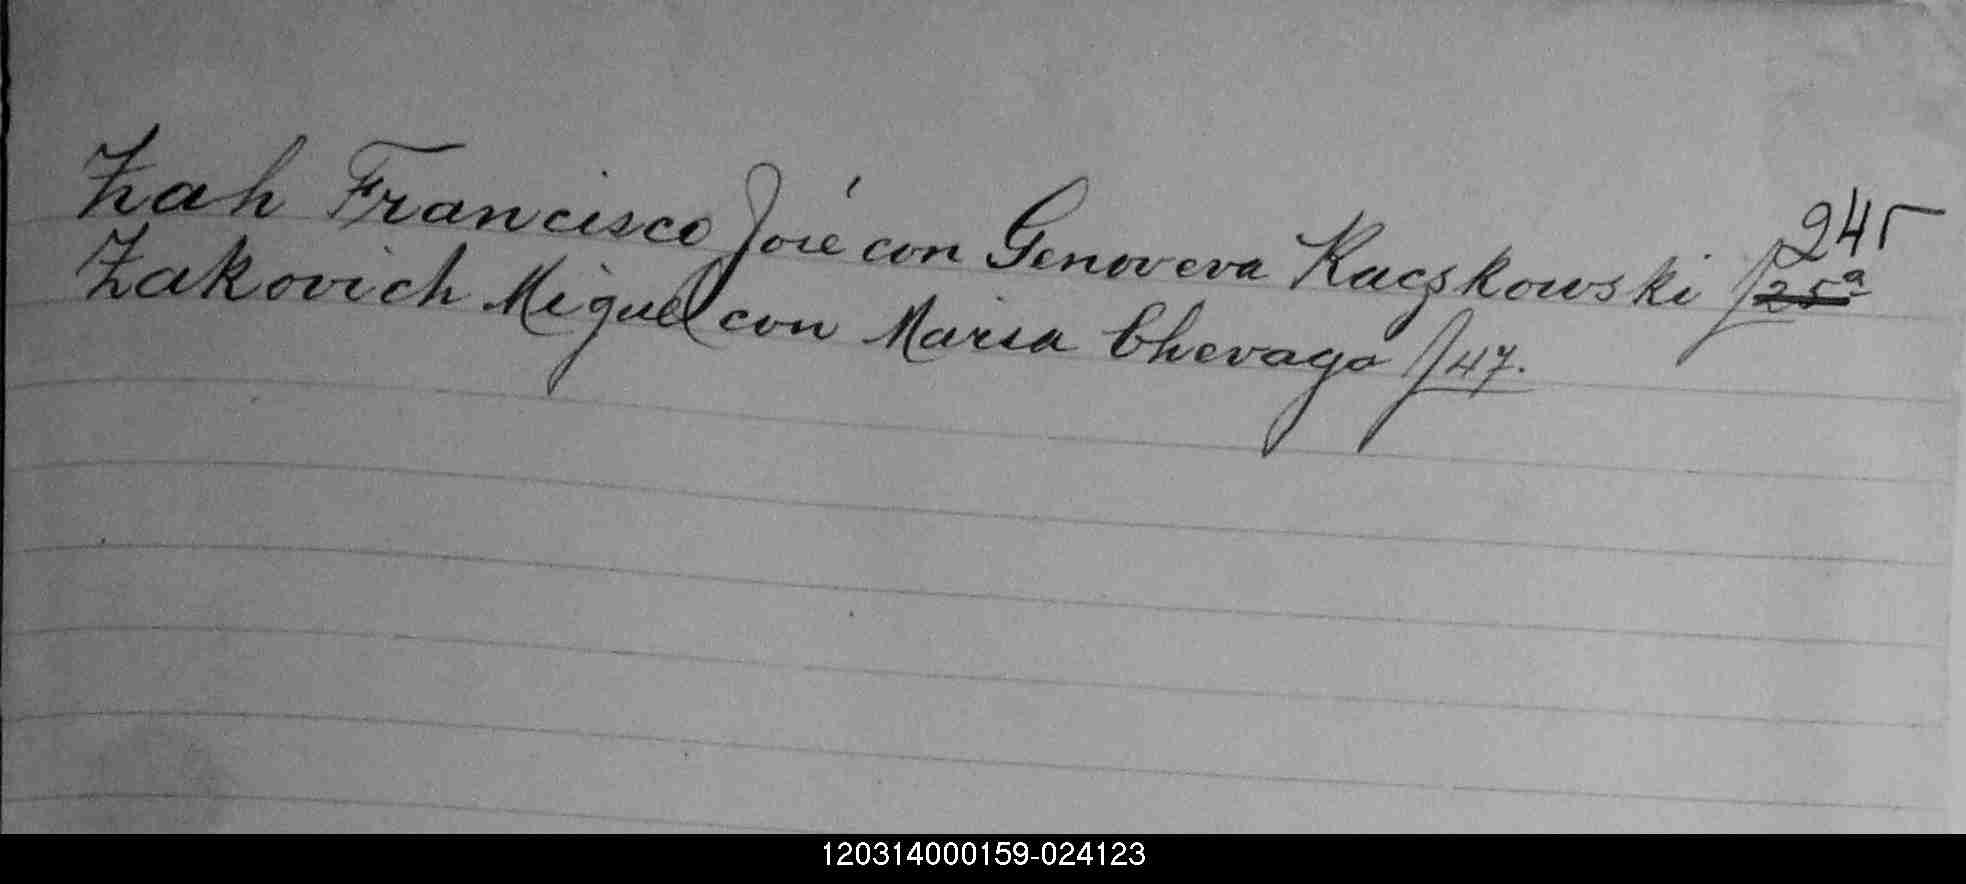 Zah Francisco José con Genoveva Kaczkowski f 25ª 245
Zakovich Miguel con Maria Chevago f 47.
120314000159-024123